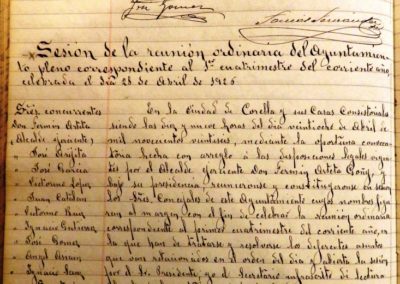 José Gómez
Sesión de la reunión ordinaria del Ayuntamien-
to pleno correspondiente al 1er cuatrimestre del corriente año,
celebrada el día 28 de Abril de 1926
Sres concurrentes
Don Fermín Arteta
(Alcalde Yacente)
" José
" José García
" Victorino López
" Juan Catalán
" Victorino Ruiz
" Ignacio Gutiérrez
" José Gómez
" Angel Arnain
" Ignacio Sanz
En la Ciudad de Corella y sus Casas Consistoriales
siendo las diez y nueve horas del día veintiocho de Abril de
mil novecientos veintiseis, mediante la oportuna convoca-
toria hecha con arreglo á las disposiciones legales vigen-
tes por el Alcalde Don Fermín Arteta Goñi, y
bajo su presidencia, reunieronse y constituyeronse en sesión
los Sres. Concejales de este Ayuntamiento cuyos nombres figu-
ran al margen con el fin de celebrar la reunión ordinaria
correspondiente al primer cuatrimestre del corriente año, en
la que han de tratarse y resolverse los diferentes asuntos
que van relacionados en el orden del día y abierta la sesión
por el Sr. Presidente yo el Secretario infrascrito di lectura